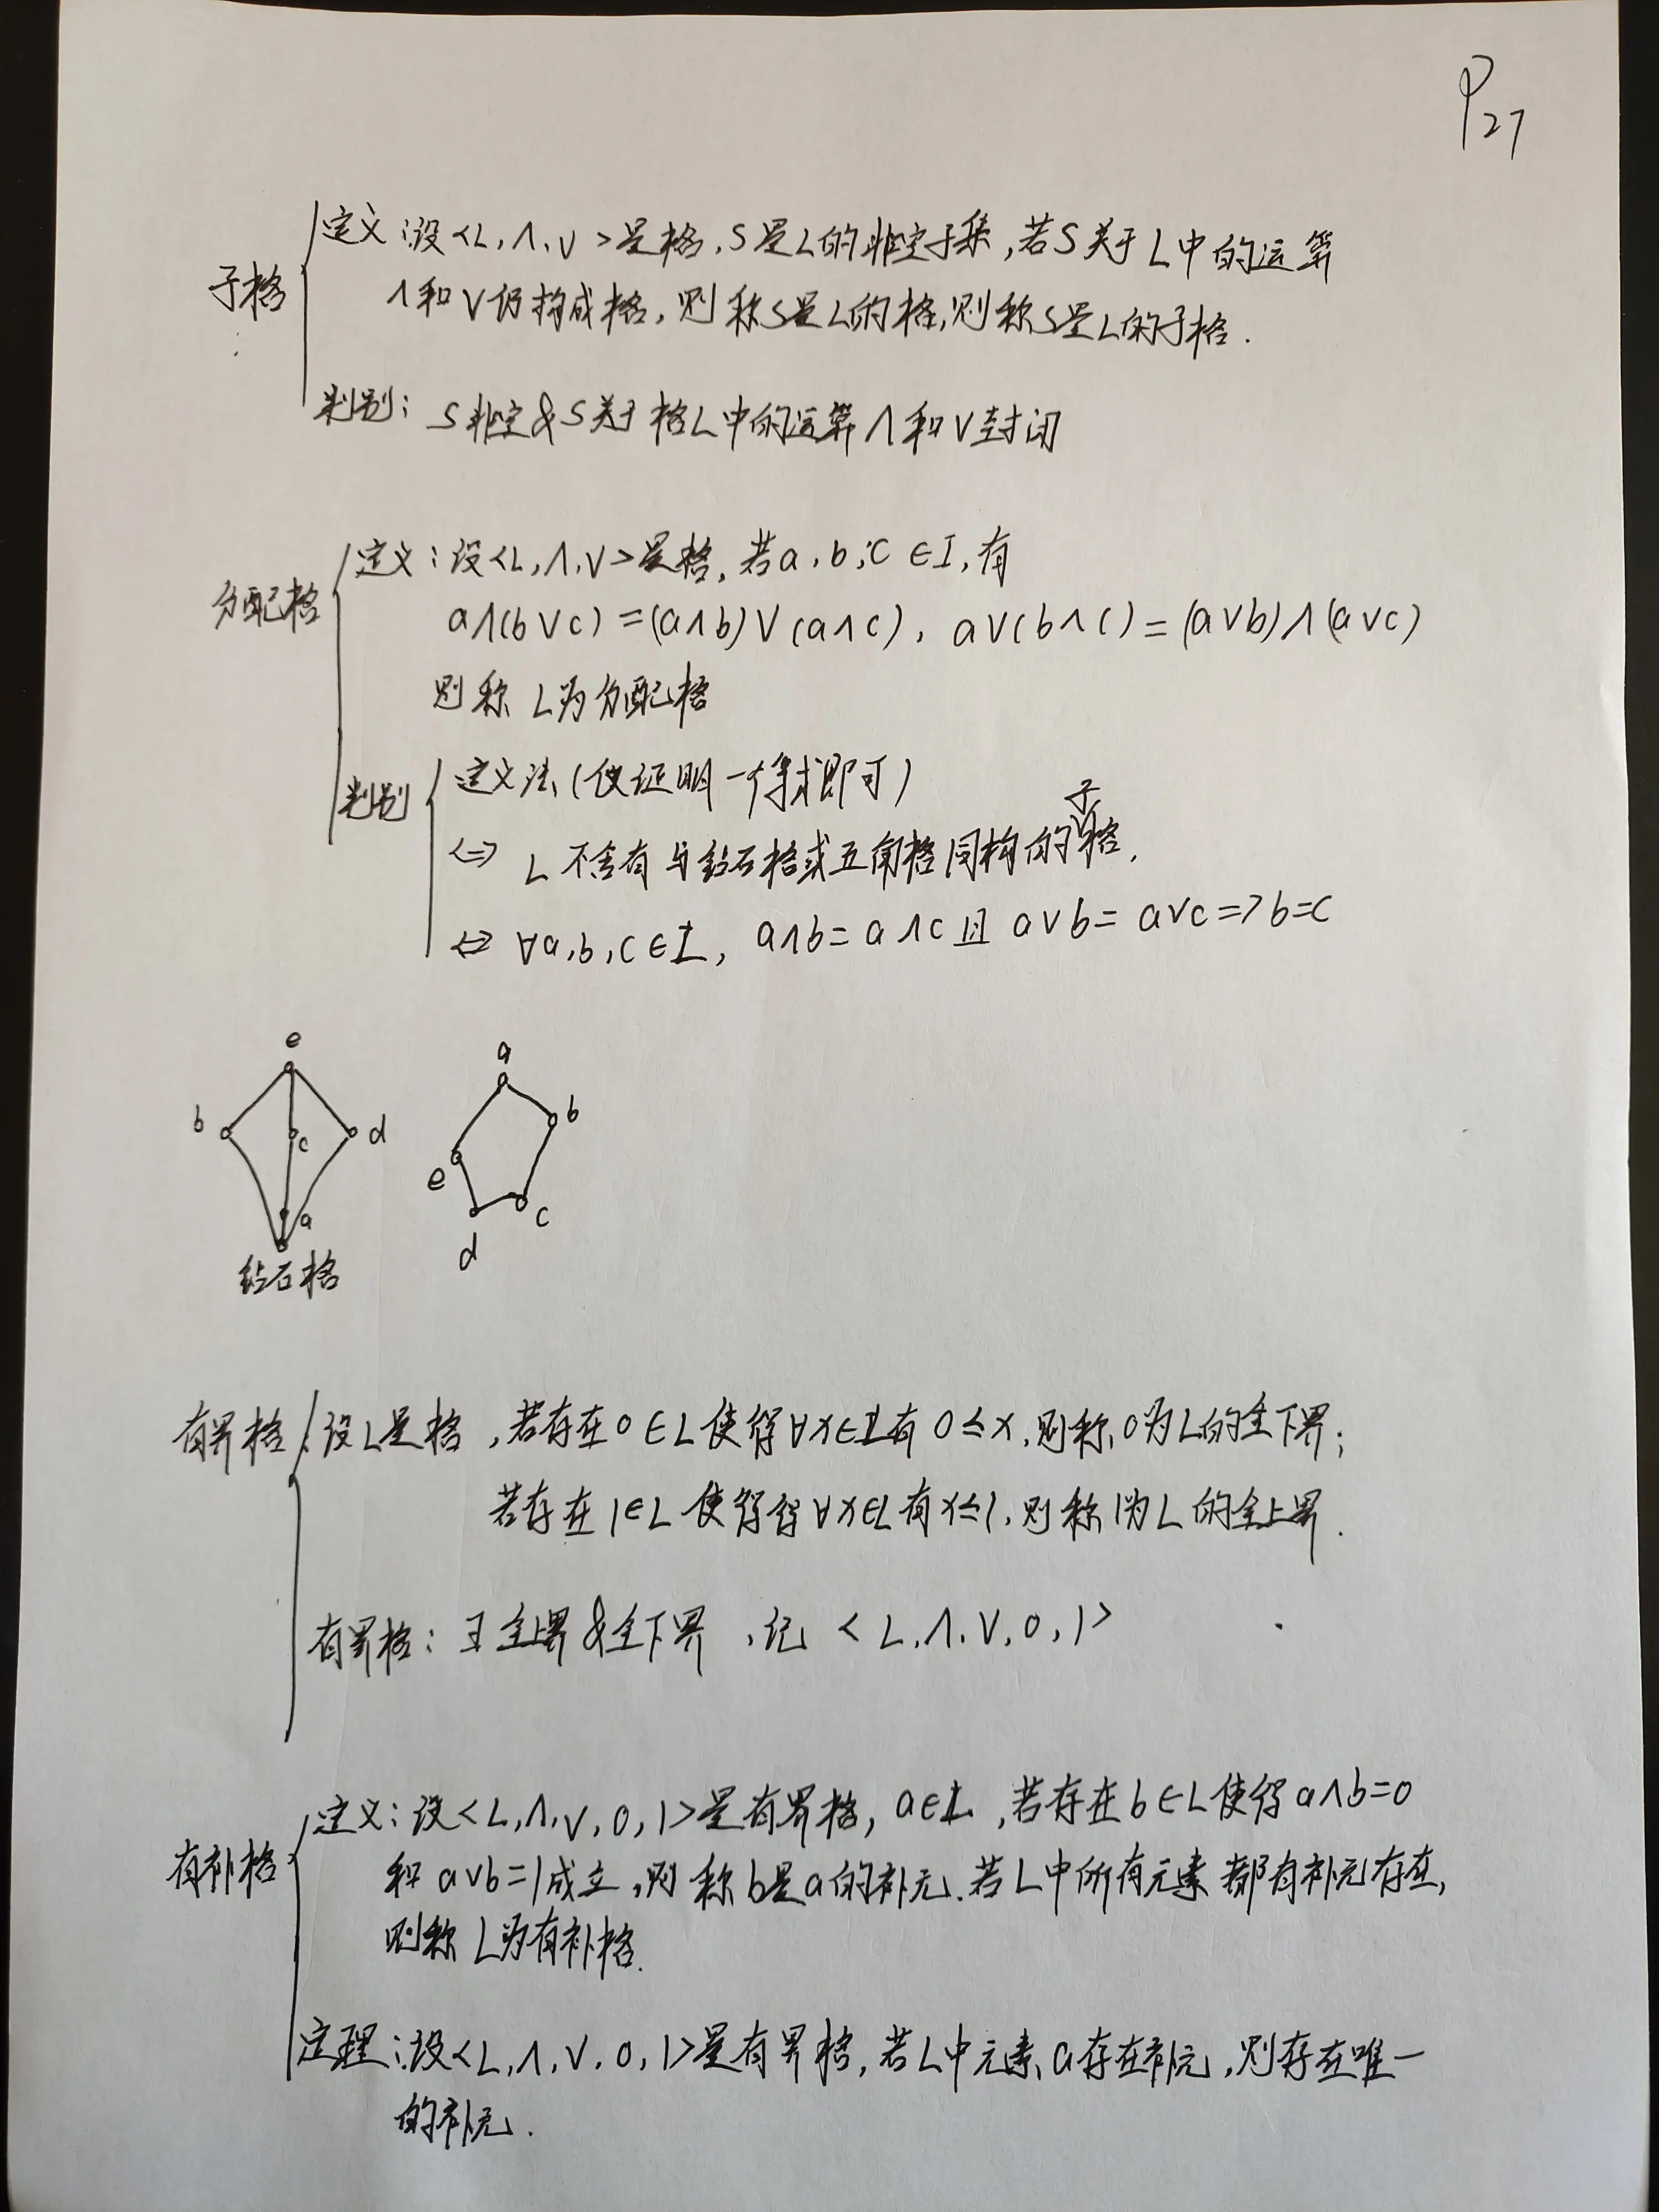 P27
定义:设<L,∧,∨>是格,S是L的非空子集,若S关于L中的运算
子格
∧和∨仍构成格,则称S是L的格,则称S是L的子格.
判别: S非空&S关于格L中的运算∧和∨封闭
定义:设<L,∧,∨>是格,若a,b,c∈L,有
分配格
a∧(b∨c)=(a∧b)∨(a∧c), a∨(b∧c)=(a∨b)∧(a∨c)
则称L为分配格
判别
定义法(仅证明一个等式即可)
⇔ L不含有与钻石格或五角格同构的子格.
⇔ ∀a,b,c∈L, a∧b=a∧c且a∨b=a∨c=>b=c
e
b c d
a
钻石格
a
b
e
c
d
有界格
设L是格,若存在0∈L使得∀x∈L有0≤x,则称0为L的全下界;
若存在1∈L使得得∀x∈L有x≤1,则称1为L的全上界.
有界格:∃全上界&全下界,记<L,∧,∨,0,1>
定义:设<L,∧,∨,0,1>是有界格,a∈L,若存在b∈L使得a∧b=0
有补格
和a∨b=1成立,则称b是a的补元.若L中所有元素都有补元存在,
则称L为有补格.
定理:设<L,∧,∨,0,1>是有界格,若L中元素a存在补元,则存在唯一
的补元.